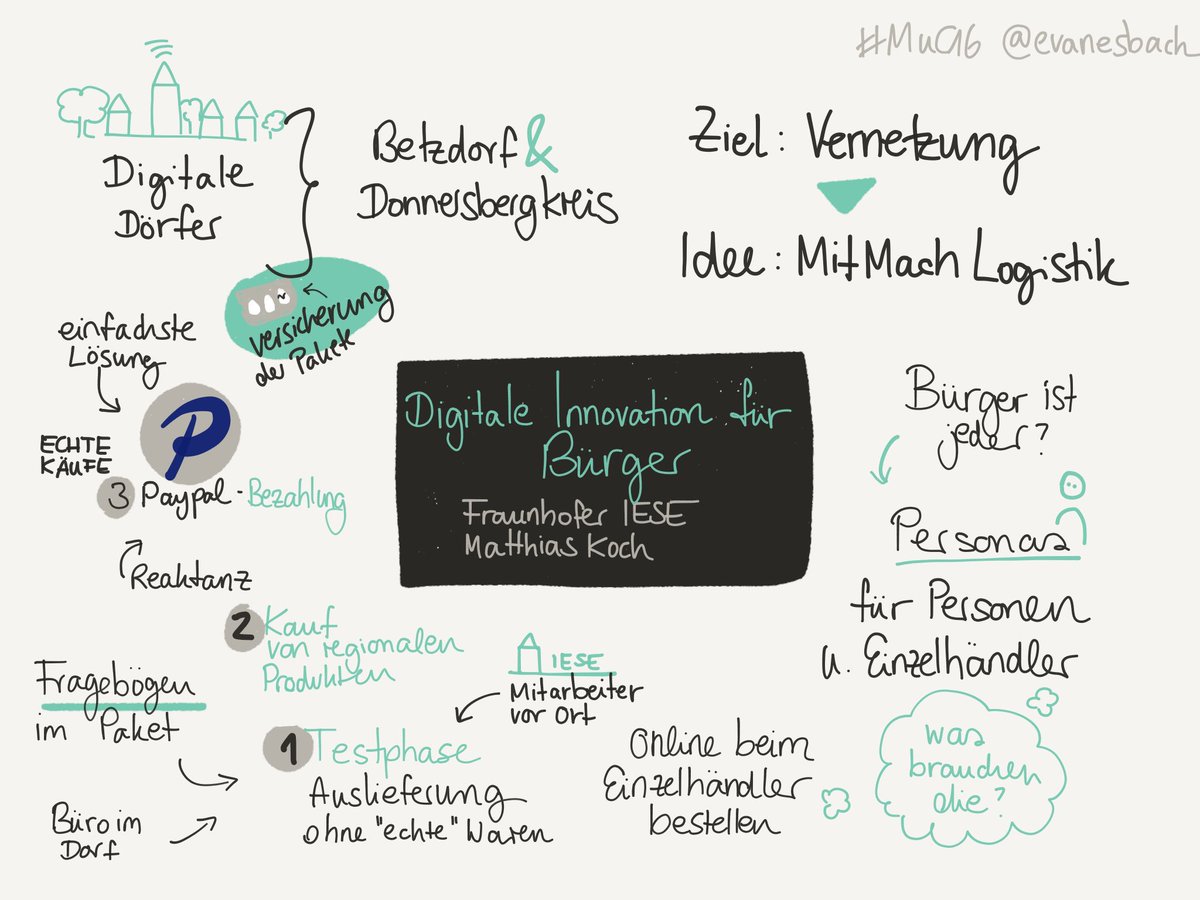 #MuC16 @evanesbach
Digitale
Dörfer
Betzdorf &
Donnersbergkreis
Ziel: Vernetzung
Idee: MitMach Logistik
Digitale Innovation für
Bürger
Fraunhofer IESE
Matthias Koch
Bürger ist
jeder?
Personas
für Personen
u. Einzelhändler
was
brauchen
die?
Online beim
Einzelhändler
bestellen
IESE
Mitarbeiter
vor Ort
1 Testphase
Auslieferung
ohne "echte" Waren
Fragebögen
im Paket
Büro im
Dorf
2 Kauf
von regionalen
Produkten
Reaktanz
3 Paypal-Bezahlung
ECHTE
KÄUFE
P
einfachste
Lösung
Versicherung
der Pakete